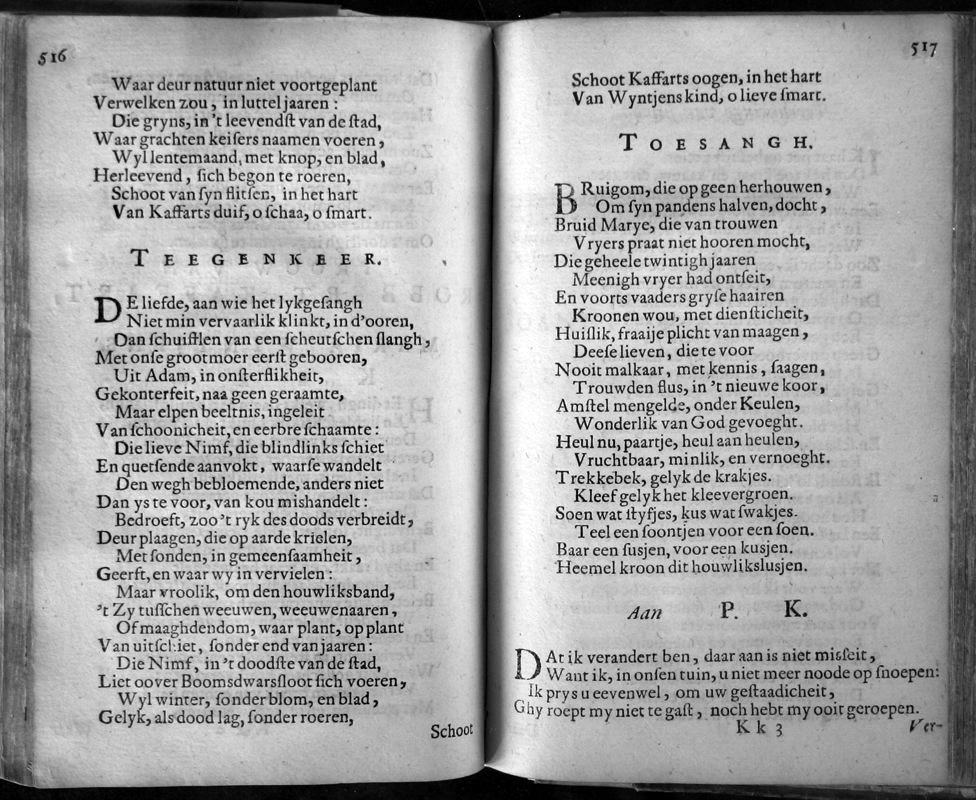 516
Waar deur natuur niet voortgeplant
Verwelken zou, in luttel jaaren:
Die gryns, in 't leevendſt van de ſtad,
Waar grachten keiſers naamen voeren,
Wyl lentemaand, met knop, en blad,
Herleevend, ſich begon te roeren,
Schoot van ſyn flitſen, in het hart
Van Kaffarts duif, o ſchaa, o ſmart.
TEEGENKEER.
DE liefde, aan wie het lykgeſangh
Niet min vervaarlik klinkt, in d'ooren,
Dan ſchuifflen van een ſcheutſchen ſlangh,
Met onſe grootmoer eerſt gebooren,
Uit Adam, in onſterflikheit,
Gekonterfeit, naa geen geraamte,
Maar elpen beeltnis, ingeleit
Van ſchoonicheit, en eerbre ſchaamte:
Die lieve Nimf, die blindlinks ſchiet
En quetſende aanvokt, waarſe wandelt
Den wegh bebloemende, anders niet
Dan ys te voor, van kou mishandelt:
Bedroeft, zoo 't ryk des doods verbreidt,
Deur plaagen, die op aarde krielen,
Met ſonden, in gemeenſaamheit,
Geerft, en waar wy in vervielen:
Maar vroolik, om den houwliksband,
't Zy tuſſchen weeuwen, weeuwenaaren,
Of maaghdendom, waar plant, op plant
Van uitſchiet, ſonder end van jaaren:
Die Nimf, in 't doodſte van de ſtad,
Liet over Boomsdwarsſloot ſich voeren,
Wyl winter, ſonder blom, en blad,
Gelyk, als dood lag, ſonder roeren,
Schoot
517
Schoot Kaffarts oogen, in het hart
Van Wyntjens kind, o lieve ſmart.
TOESANGH.
BRuigom, die op geen herhouwen,
Om ſyn pandens halven, docht,
Bruid Marye, die van trouwen
Vryers praat niet hooren mocht,
Die geheele twintigh jaaren
Meenigh vryer had ontſeit,
En voorts vaaders gryſe haairen
Kroonen wou, met dienſticheit,
Huiſlik, fraaije plicht van maagen,
Deeſe lieven, die te voor
Nooit malkaar, met kennis, ſaagen,
Trouwden flus, in 't nieuwe koor,
Amſtel mengelde, onder Keulen,
Wonderlik van God gevoeght.
Heul nu, paartje, heul aan heulen,
Vruchtbaar, minlik, en vernoeght.
Trekkebek, gelyk de krakjes.
Kleef gelyk het kleevergroen.
Soen wat ſtyfjes, kus wat ſwakjes.
Teel een ſoontjen voor een ſoen.
Baar een ſusjen, voor een kusjen.
Heemel kroon dit houwlikslusjen.
Aan P. K.
DAt ik verandert ben, daar aan is niet misſeit,
Want ik, in onſen tuin, u niet meer noode op ſnoepen:
Ik prys u eevenwel, om uw geſtaadicheit,
Ghy roept my niet te gaſt, noch hebt my ooit geroepen.
Kk 3
Ver-